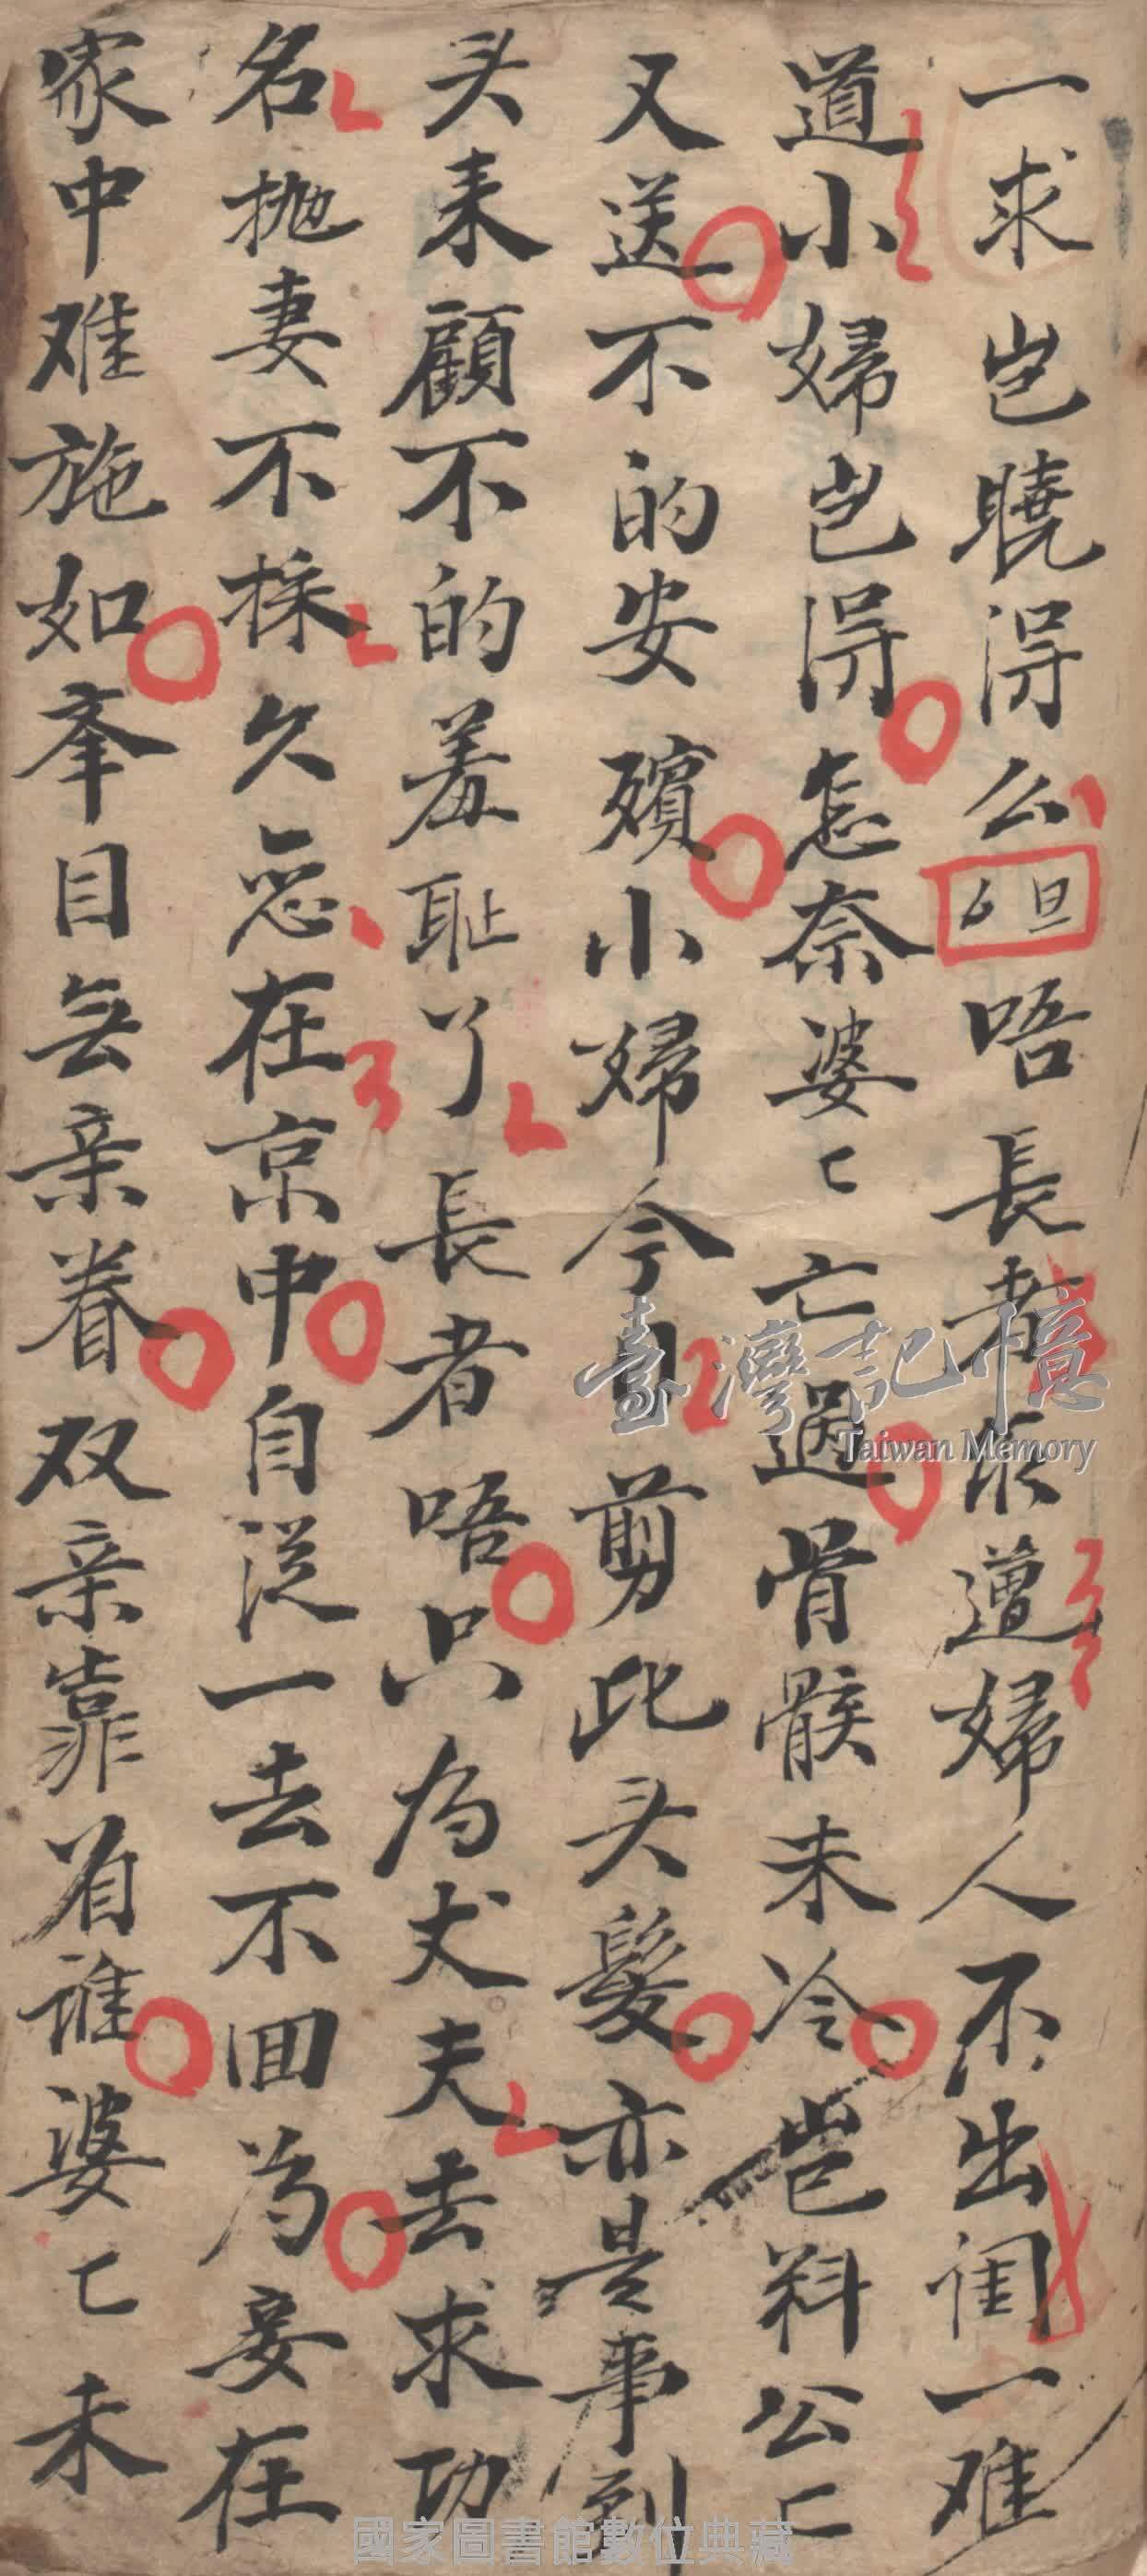 一求岂曉得么
旦
唔長者
遭婦人不出闺一难
道小婦岂得怎奈婆〻亡過骨骸未冷岂料公〻
又送不的安殯小婦今日剪此头髮亦是事到
头来顧不的羞耻了長者唔只为丈夫去求功
名抛妻不採久恋在京中自従一去不回為妾在
家中难施如挙目無亲眷双亲靠着谁婆〻未
臺灣記憶
Taiwan Memory
國家圖書館數位典藏